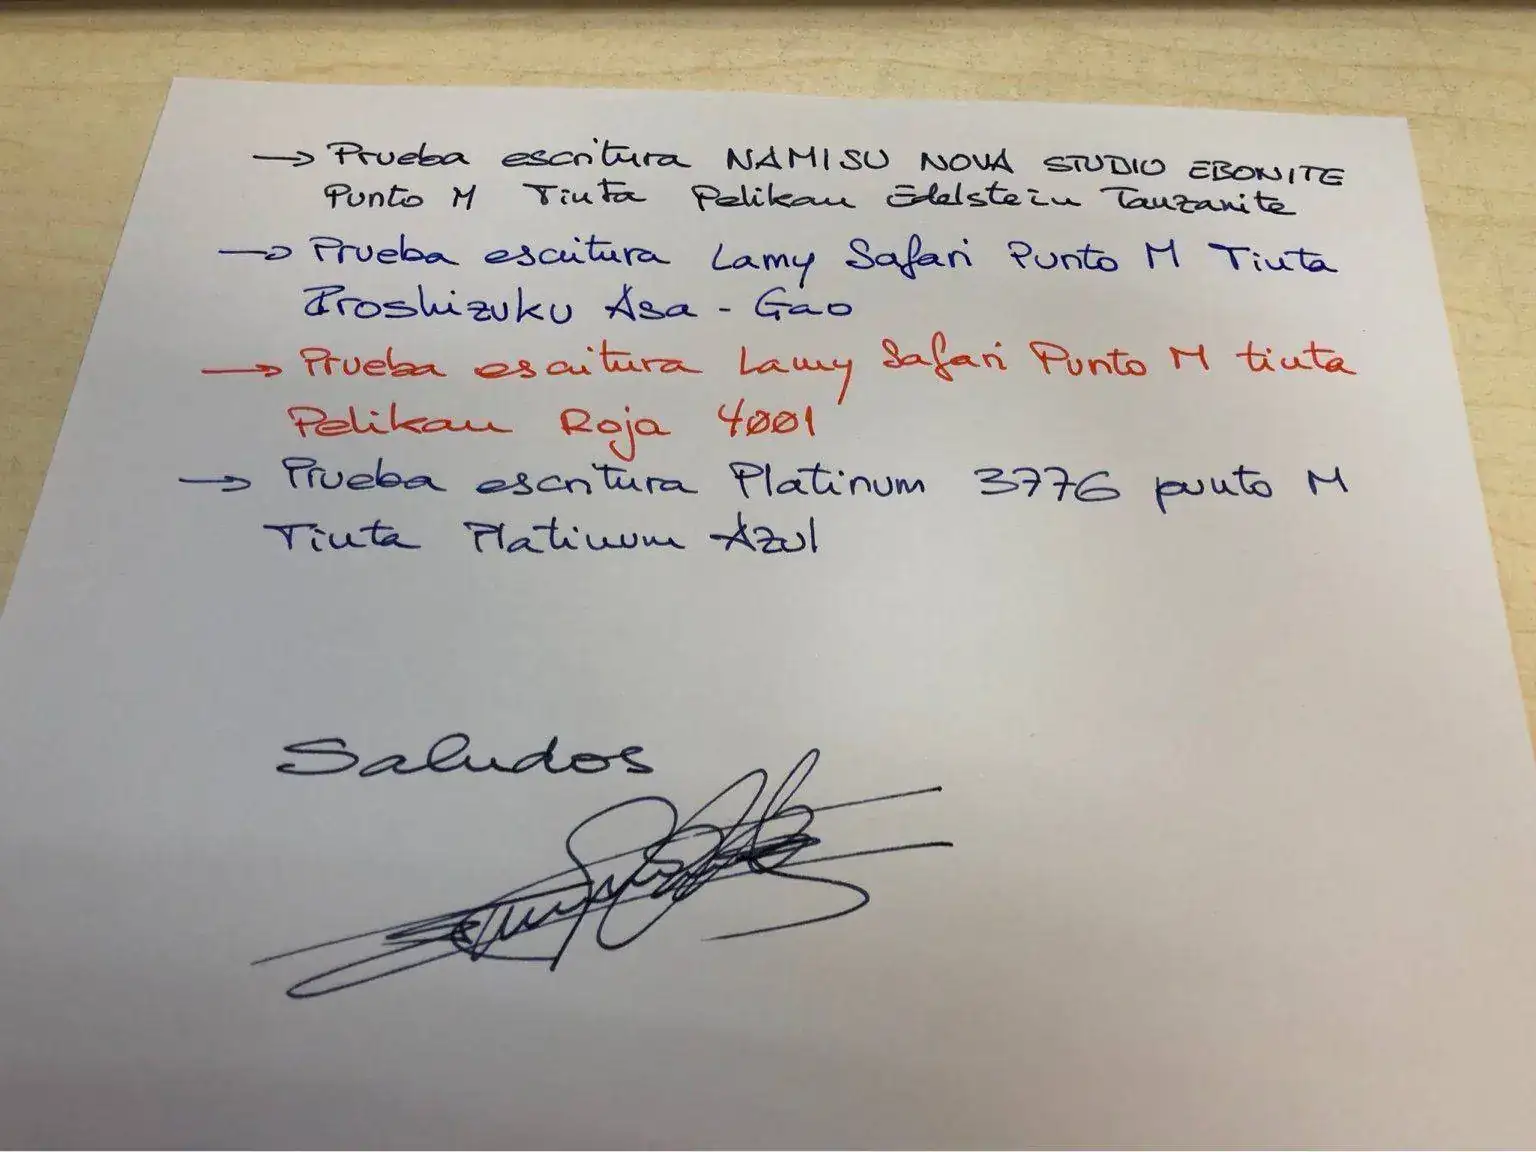 → Prueba escritura NAMISU NOVA STUDIO EBONITE
Punto M Tinta Pelikan Edelstein Tanzanite
→ Prueba escritura Lamy Safari Punto M Tinta
Iroshizuku Asa - Gao
→ Prueba escritura Lamy Safari Punto M tinta
Pelikan Roja 4001
→ Prueba escritura Platinum 3776 punto M
Tinta Platinum Azul
Saludos